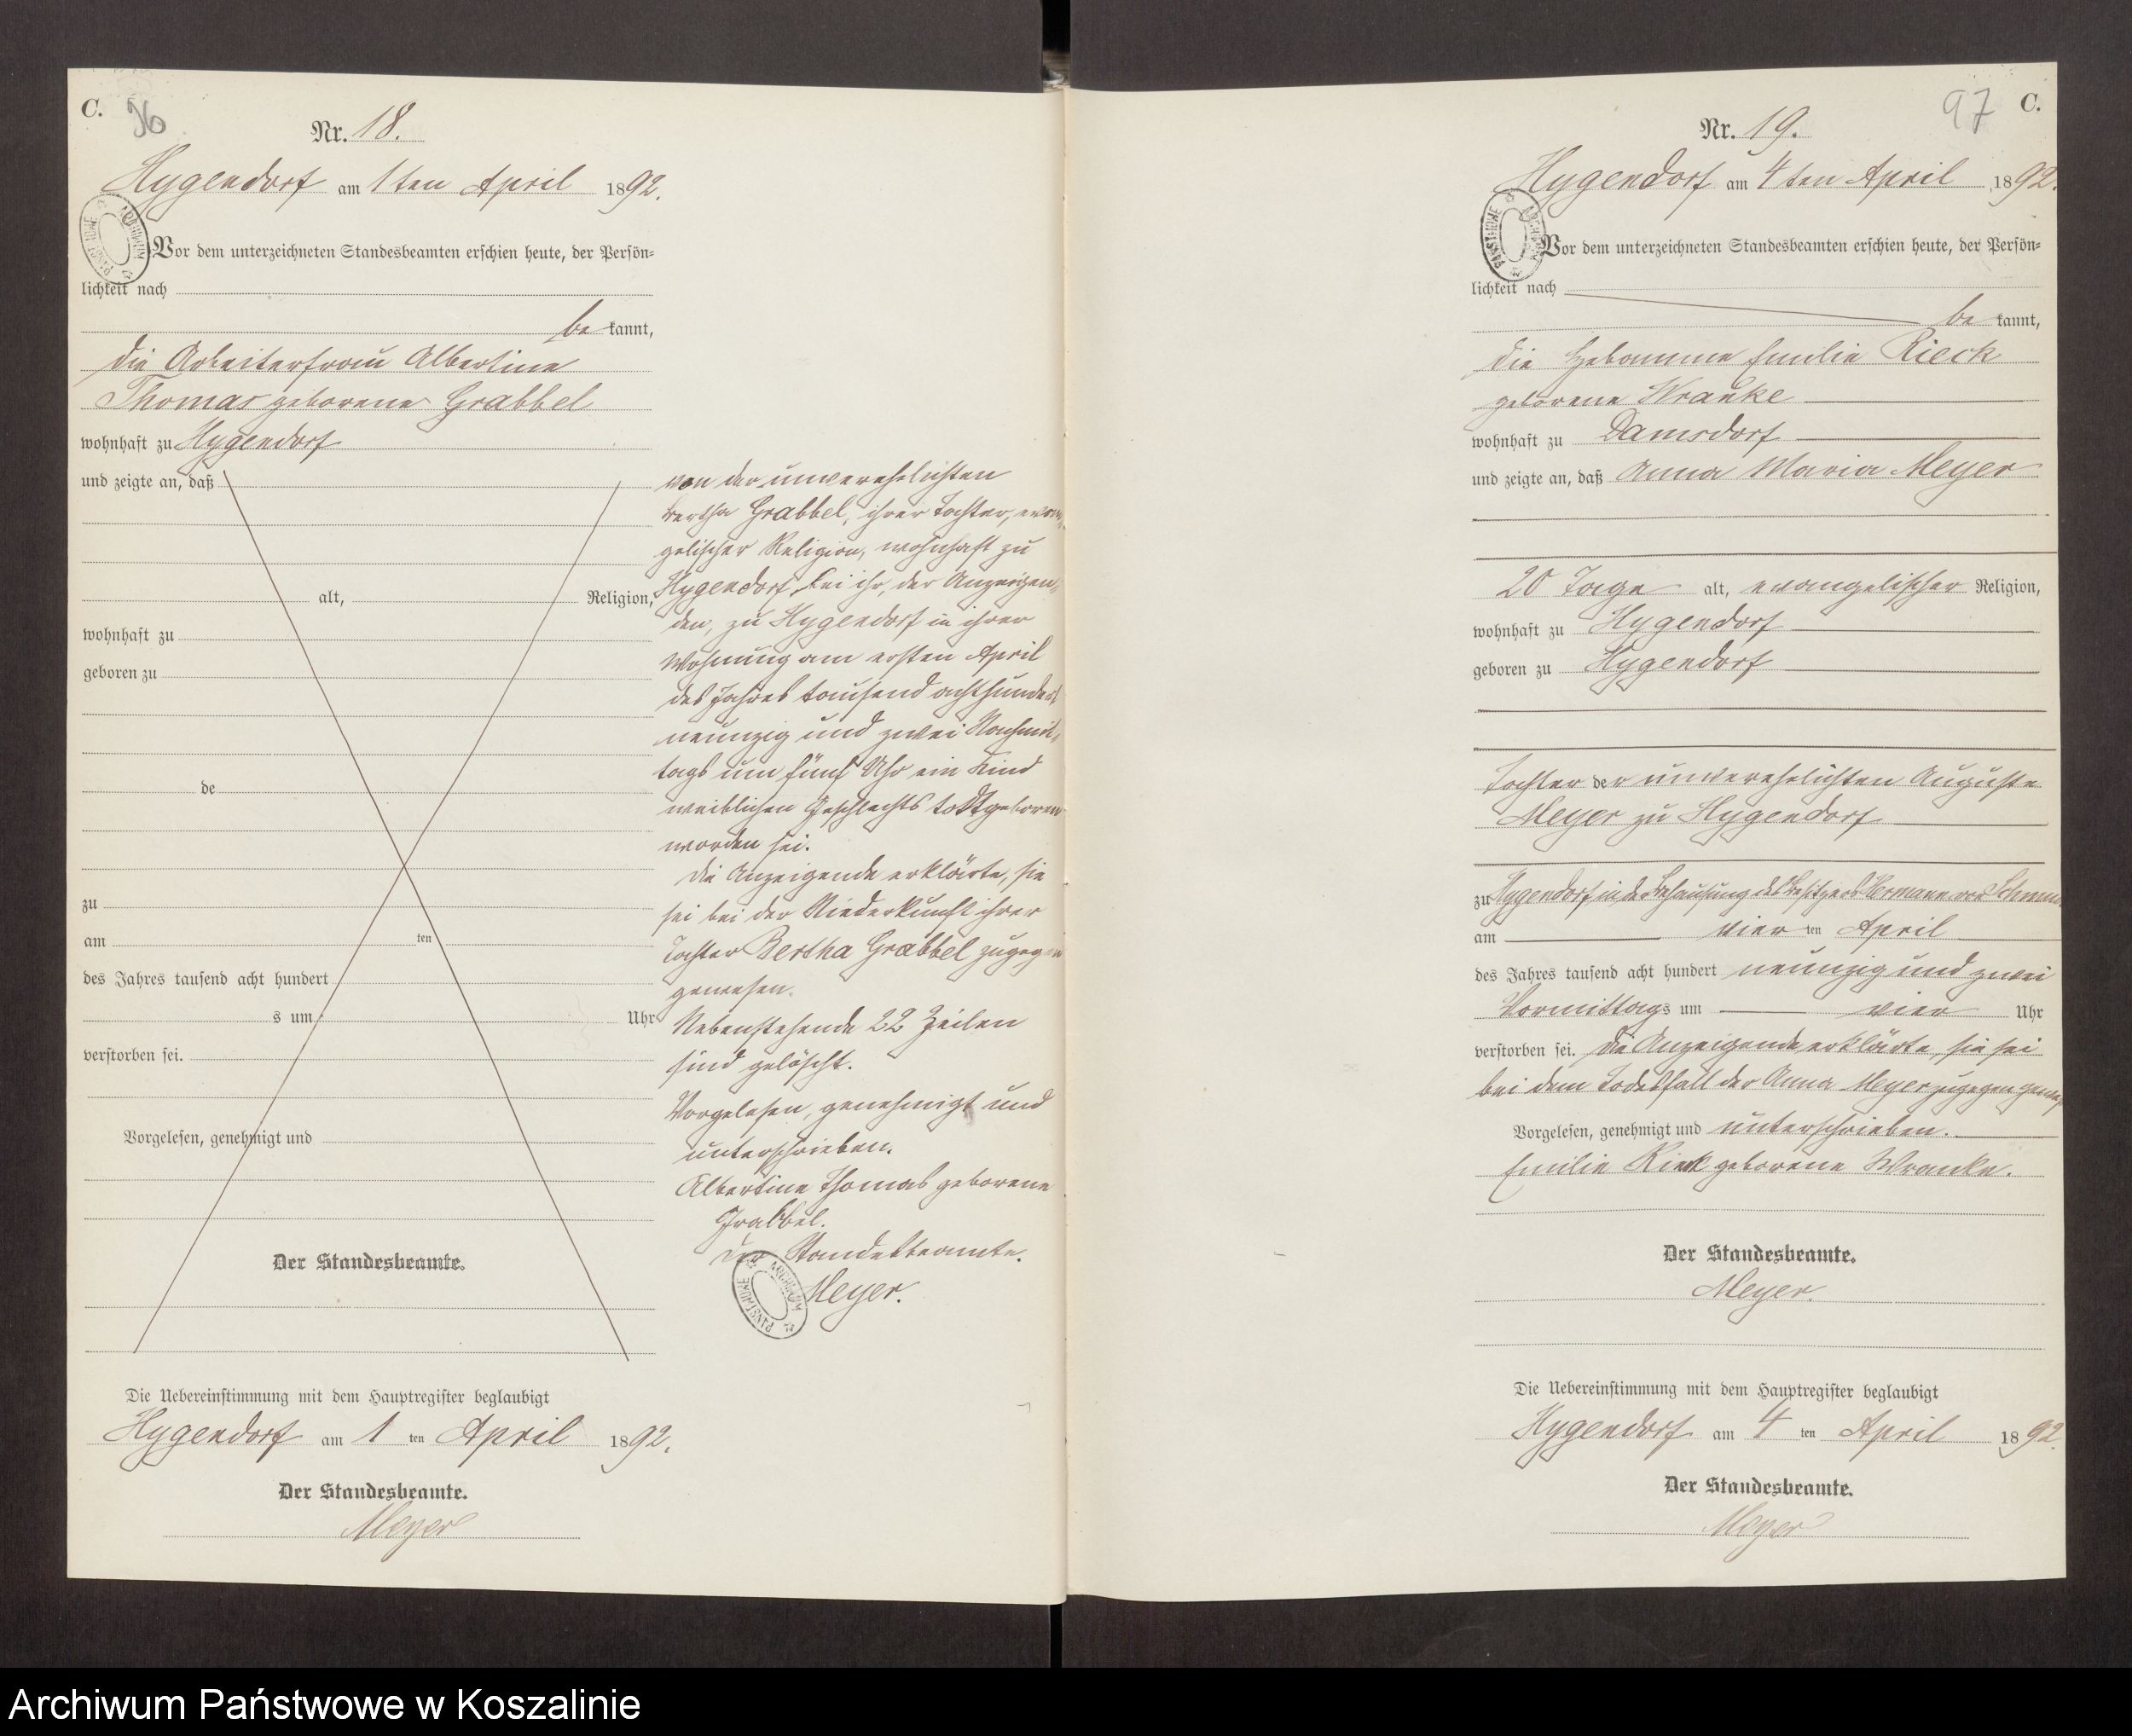 C.
96
Nr. 18.
Hygendorf am 1ten April 1892.
Vor dem unterzeichneten Standesbeamten erschien heute, der Persön-
lichkeit nach
be kannt,
die Arbeiterfrau Albertine
Thomas geborene Grabbel
wohnhaft zu Hygendorf
und zeigte an, daß
alt, Religion,
wohnhaft zu
geboren zu
de
zu
am ten
des Jahres tausend acht hundert
s um Uhr
verstorben sei.
Vorgelesen, genehmigt und
Der Standesbeamte.
von der unverehelichten
Bertha Grabbel, ihrer Tochter, evan-
gelischer Religion, wohnhaft zu
Hygendorf, bei ihr, der Anzeigen-
den, zu Hygendorf in ihrer
Wohnung am ersten April
des Jahres tausend achthundert
neunzig und zwei Nachmit-
tags um fünf Uhr ein Kind
weiblichen Geschlechts todtgeboren
worden sei.
Die Anzeigende erklärte, sie
sei bei der Niederkunft ihrer
Tochter Bertha Grabbel zugegen
gewesen.
Nebenstehende 22 Zeilen
sind gelöscht.
Vorgelesen, genehmigt und
unterschrieben.
Albertine Thomas geborene
Grabbel.
Der Standesbeamte.
Meyer.
Die Uebereinstimmung mit dem Hauptregister beglaubigt
Hygendorf am 1 ten April 1892.
Der Standesbeamte.
Meyer
97
C.
Nr. 19.
Hygendorf am 4ten April 1892.
Vor dem unterzeichneten Standesbeamten erschien heute, der Persön-
lichkeit nach
be kannt,
die Hebamme Emilie Rieck
geborene Wranke
wohnhaft zu Damsdorf
und zeigte an, daß Anna Maria Meyer
20 Tage alt, evangelischer Religion,
wohnhaft zu Hygendorf
geboren zu Hygendorf
Tochter der unverehelichten Auguste
Meyer zu Hygendorf
zu Hygendorf, in der Behausung des Besitzers Hermann
am vier ten April
des Jahres tausend acht hundert neunzig und zwei
Vormittags um vier Uhr
verstorben sei. Die Anzeigende erklärte, sie sei
bei dem Todesfall der Anna Meyer zugegen
Vorgelesen, genehmigt und unterschrieben.
Emilie Rieck geborene Wranke.
Der Standesbeamte.
Meyer.
Die Uebereinstimmung mit dem Hauptregister beglaubigt
Hygendorf am 4 ten April 1892.
Der Standesbeamte.
Meyer
Archiwum Państwowe w Koszalinie